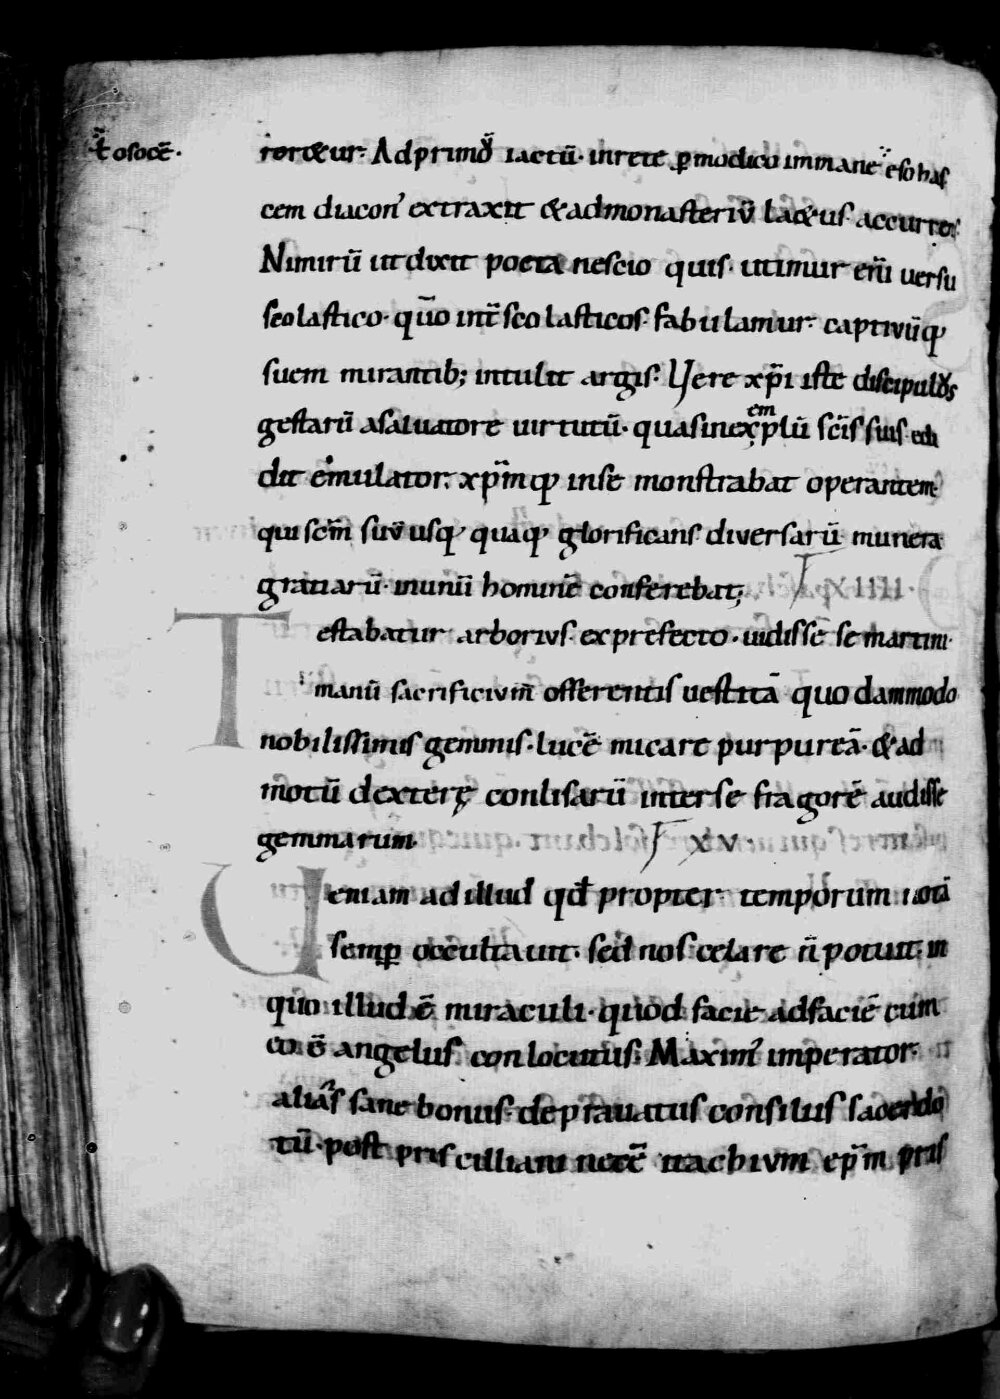 t̄ osocē·
rort&ur· Ad primū iactū· in rete ꝑmodico immanē esohas
cem diacon' extraxit & ad monasteriū la&us accurre
Nimirū ut dixit poeta nescio quis· utimur eni̅ uersu
scolastico· qūo int̄ scolasticos fabulamur· captiuūq;
suem mirantib; intulit argis· Uere xp̄i iste discipulus
gestarū a saluatore uirtutū· quas in exemplū sc̄is suis edi
dit emulator· xp̄mq; in se monstrabat operantem·
qui sc̄m suū usq; quaq; glorificans diuersarū munera
gratiarū· in unū hominē conferebat;
XIIII
Testabatur arborius· ex prefecto· uidisse se martini·
manū sacrificium offerentis uestitā quodammodo
nobilissimis gemmis· lucē micare purpureā· & ad
motū dexterę conlisarū inter se fragorē audisse
gemmarum·
XV·
Ueniam ad illud qd̄ propter temporum notā
semꝑ occultauit· sed nos celare n̄ potuit· in
quo illud ē miraculi· quod facie ad faciē cum
eo ē angelus conlocutus· Maxim' imperator·
alias sane bonus· deprauatus consiliis sacerdo
tū· post priscilliani necē itachium ep̄m pris